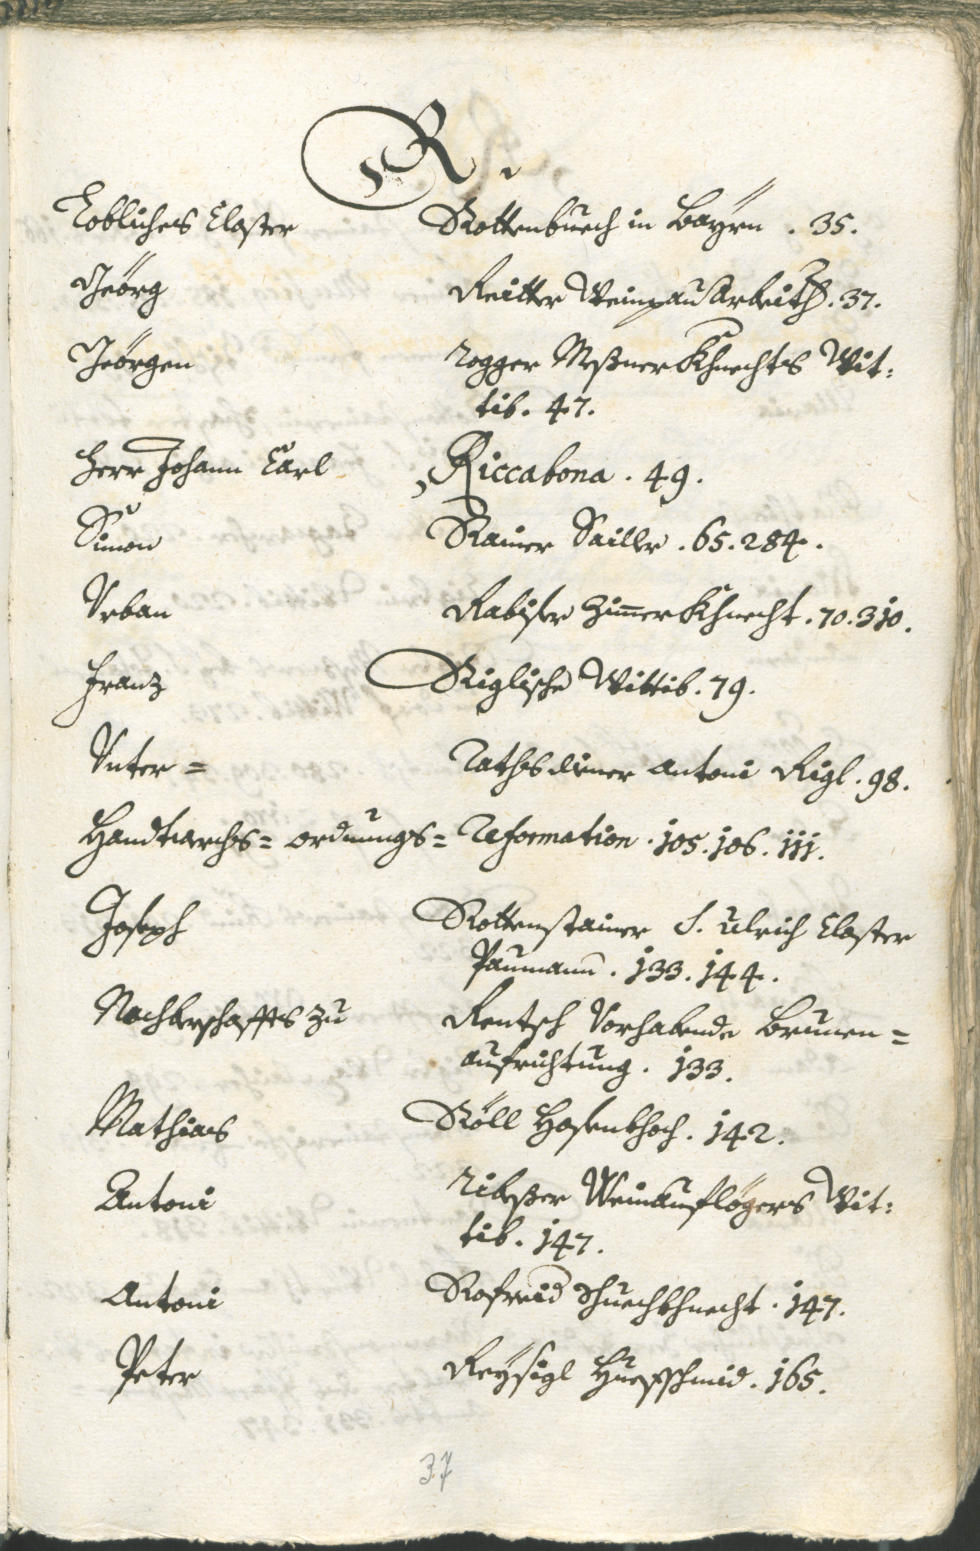 R.
Lobliches Closter Rottenbuech in Bayrn . 35.
Jeörg Reitter Weinpau Arbeith. 37.
Jeörgen rogger Meßner Khnechts Wit:
tib. 47.
Herr Johann Carl Riccabona . 49.
Simon Rainer Sailler . 65. 284.
Urban Rabister Zimmer Khnecht . 70. 310.
Franz Riglische Wittib. 79.
Unter = Raths diener Antoni Rigl . 98.
Handtwerchs = ordnungs = Reformation . 105. 106. 111.
Joseph Rottenstainer S. Ulrich Closter
Paumann . 133. 144.
Nachberschaffts zu Rentsch Vorhabende Brunen =
aufrichtung . 133.
Mathias Röll Hofenkhoch . 142.
Antoni ribeßer Weinauflögers Wit:
tib. 147.
Antoni Rofreid Schuechkhnecht . 147.
Peter Reÿsigl Huefschmid . 165.
37